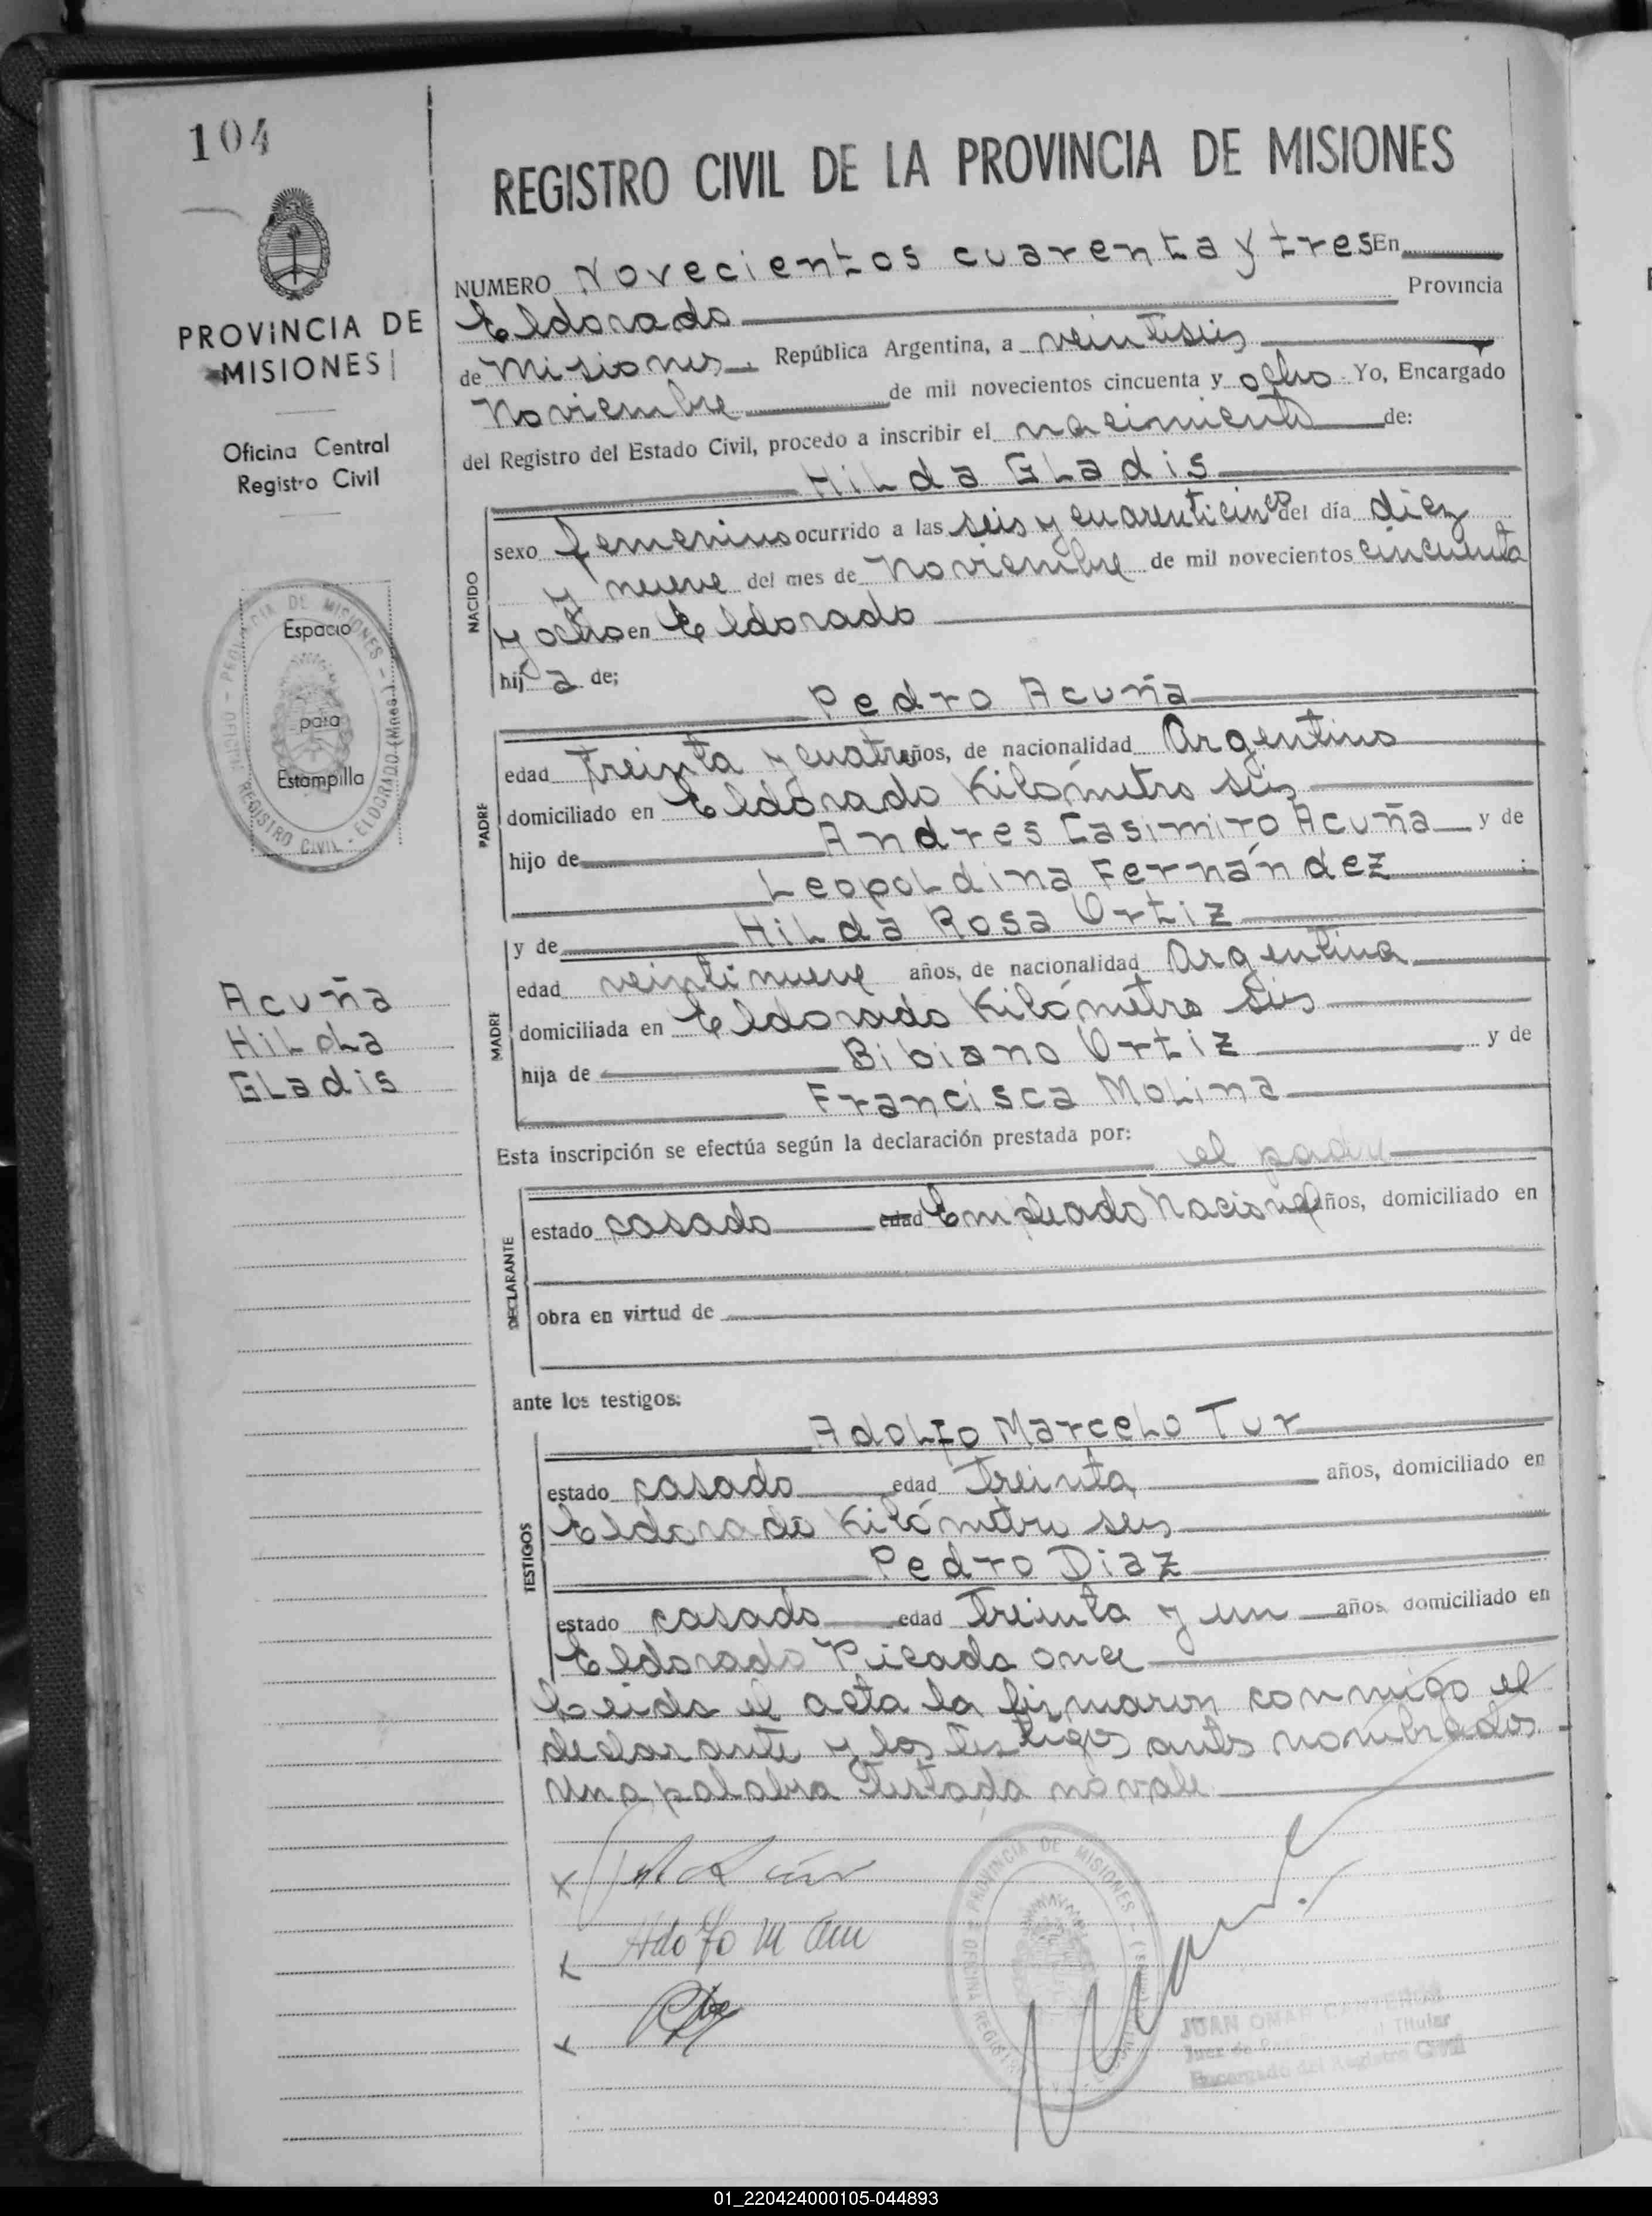 104
REGISTRO CIVIL DE LA PROVINCIA DE MISIONES
PROVINCIA DE
MISIONES
Oficina Central
Registro Civil
NUMERO Novecientos cuarenta y tres En
Eldorado Provincia
de Misiones. República Argentina, a veintiseis
Noviembre de mil novecientos cincuenta y ocho Yo, Encargado
del Registro del Estado Civil, procedo a inscribir el nacimiento de:
Hilda Gladis
NACIDO
sexo femenino ocurrido a las seis y cuarenticinco del día diez
y nueve del mes de Noviembre de mil novecientos cincuenta
y ocho en Eldorado
hija de;
OFICINA - PROVINCIA DE MISIONES -
REGISTRO CIVIL - ELDORADO (Mnes.)
Espacio
para
Estampilla
Pedro Acuña
PADRE
edad treinta y cuatro años, de nacionalidad Argentino
domiciliado en Eldorado Kilómetro seis
hijo de Andres Casimiro Acuña y de
Leopoldina Fernández
y de Hilda Rosa Ortiz
MADRE
edad veintinueve años, de nacionalidad Argentina
domiciliada en Eldorado Kilómetro seis
hija de Bibiano Ortiz y de
Francisca Molina
Acuña
Hilda
Gladis
Esta inscripción se efectúa según la declaración prestada por:
el padre
DECLARANTE
estado casado edad Empleado Nacional años, domiciliado en
obra en virtud de
ante los testigos:
Adolfo Marcelo Tur
TESTIGOS
estado casado edad treinta años, domiciliado en
Eldorado Kilómetro seis
Pedro Diaz
estado casado edad treinta y un años domiciliado en
Eldorado Picada once
Leida el acta la firmaron conmigo el
declarante y los testigos antes nombrados
Una palabra Testada no vale
Adolfo M
PROVINCIA DE MISIONES
JUAN OMAR
Juez de Titular
Encargado del Registro Civil
01_220424000105-044893